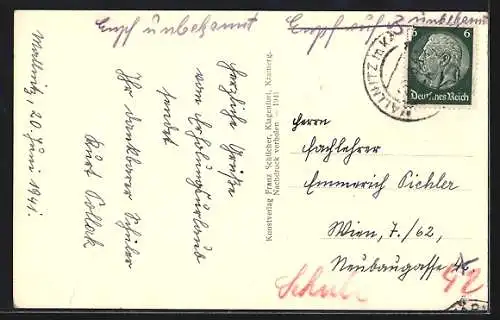 Empf unbekannt
Empf auf 2 unbekannt
Mallnitz, 20. Juni 1941.
Herzliche Grüße
vom Erholungsurlaub
sendet
Ihr dankbarer Schüler
Kurt Pollak
Kunstverlag Franz Schilcher, Klagenfurt,
Nachdruck verboten 1941
6 6
Deutsches Reich
MALLNITZ
Herrn
Fachlehrer
Emmerich Pichler
Wien, 7./62,
Neubaugasse
42
Schule